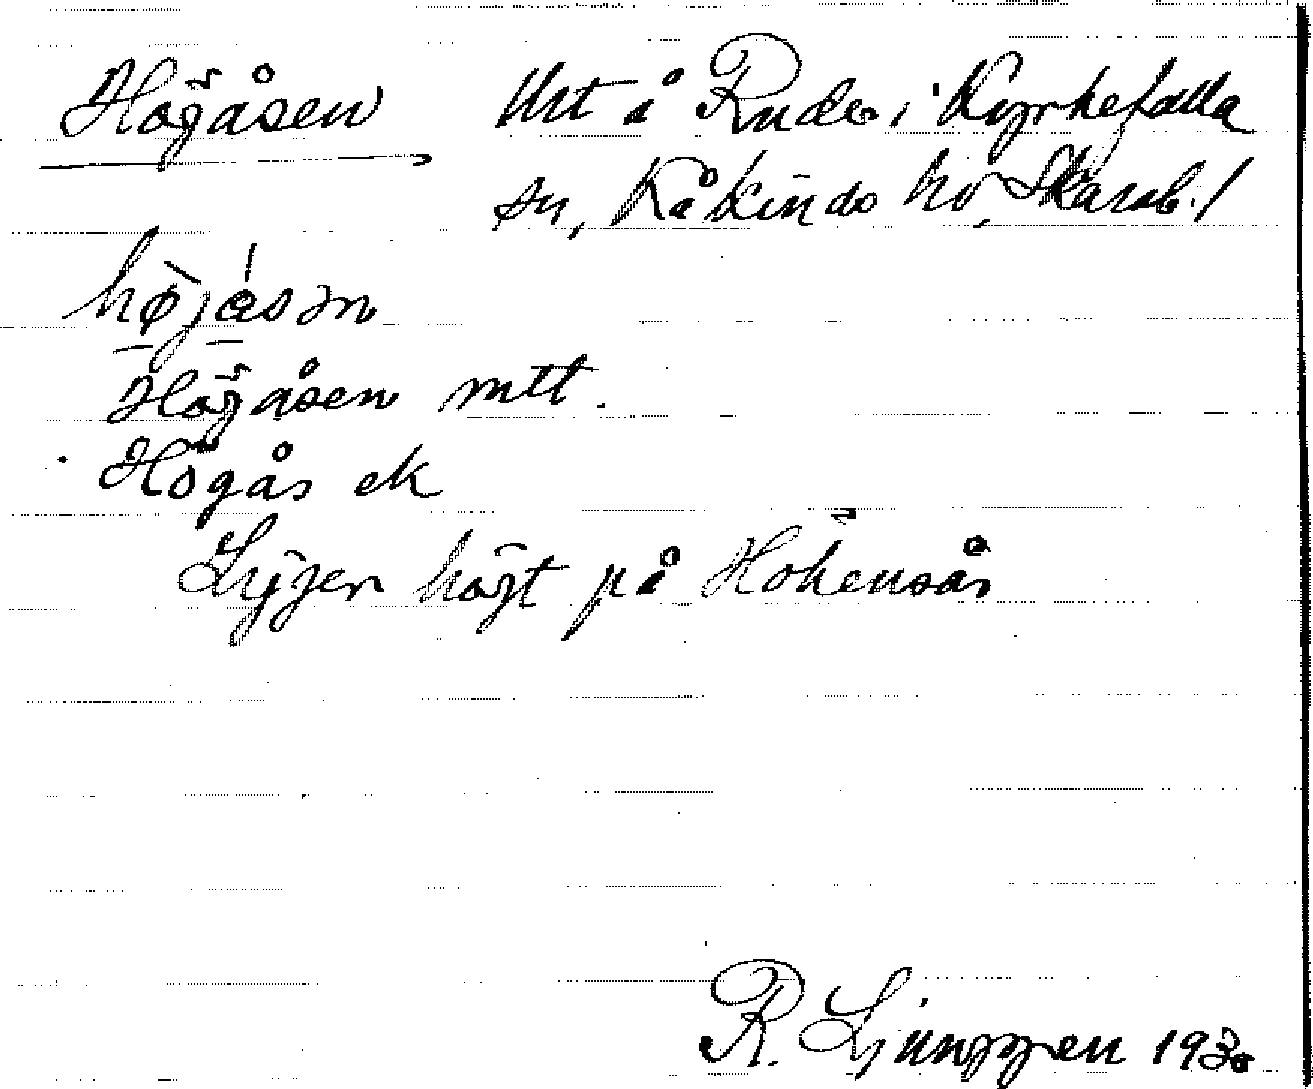 Högåsen Urt å Ruder, i Kyrkefalla
sn, Kåkinds hd, Skarab. l
Högåsen mtt.
Högås ek
Ligger högt på Hökensås
R. Ljunggren 1930